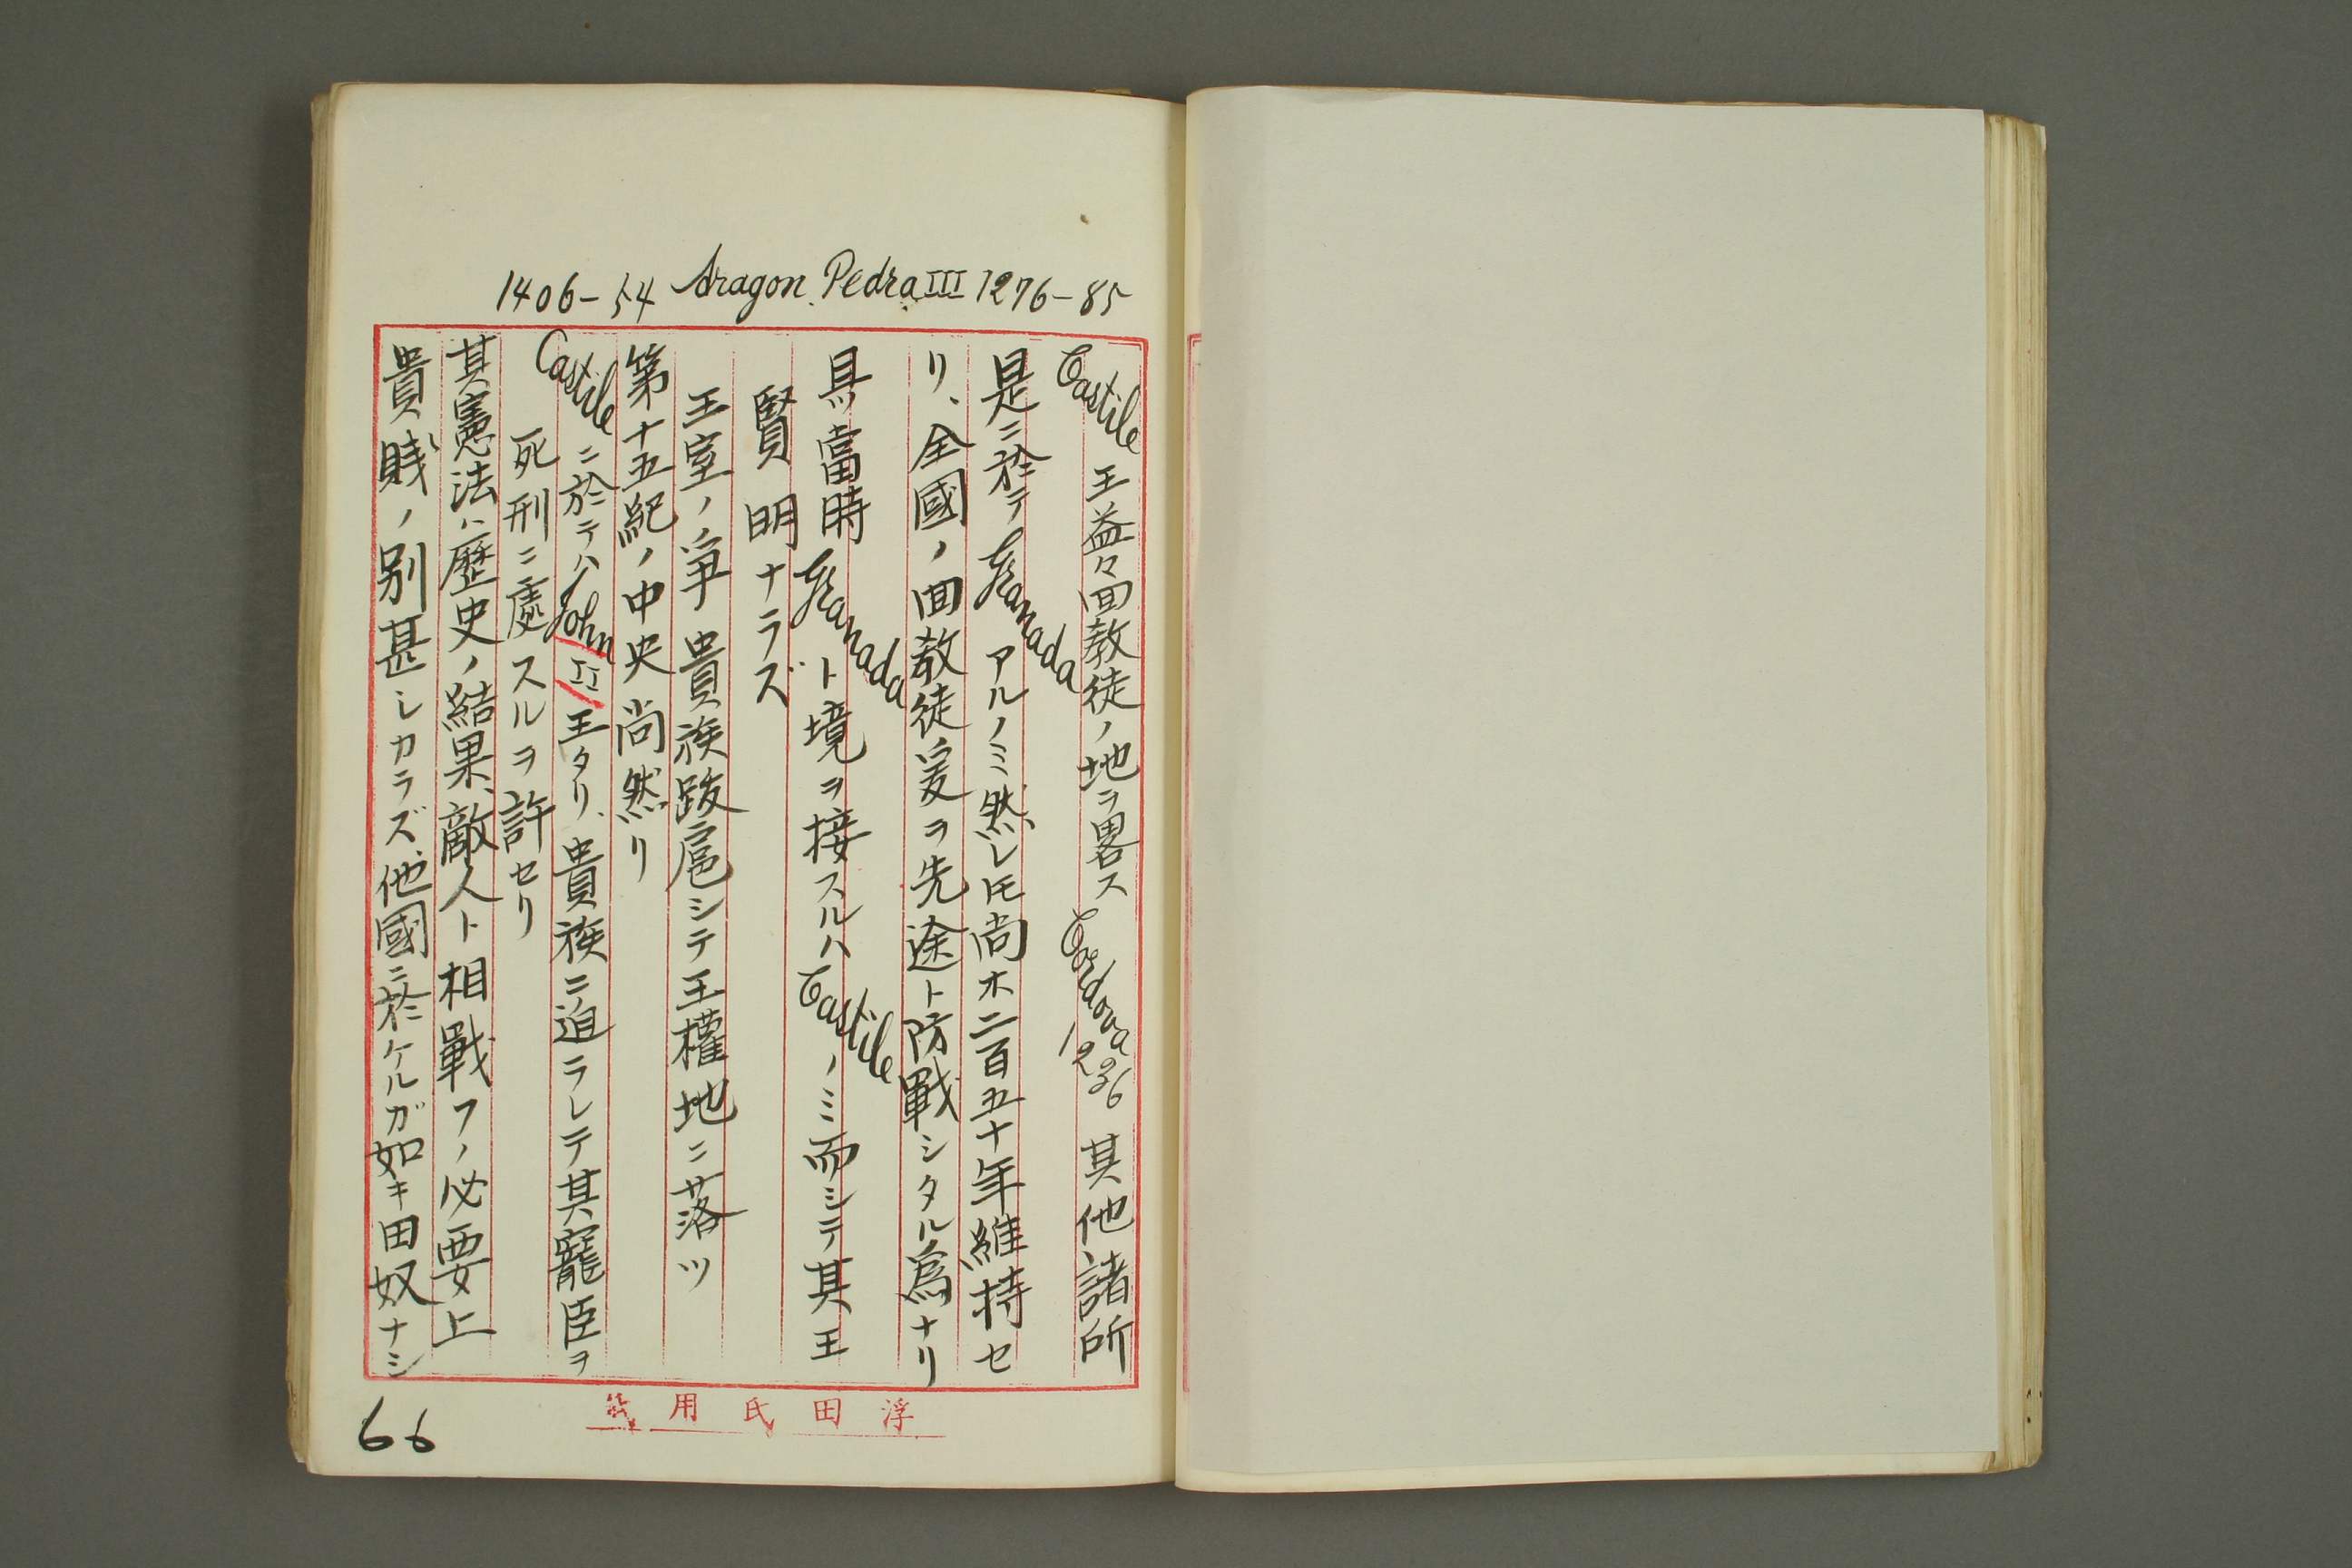 1406-54 Aragon. Pedro III 1276-85
Castile 王益々回教徒ノ地ヲ畧ス Cordova 1236 其他諸所
是ニ於テ Granada アルノミ然レ𪜈尚ホ二百五十年維持セ
リ、全國ノ回教徒爰ヲ先途ト防戰シタル爲ナリ
且當時 Granada ト境ヲ接スルハ Castile ノミ而シテ其王
賢明ナラズ
王室ノ爭 貴族跋扈シテ王權地ニ落ツ
第十五紀ノ中央尚然リ
Castile ニ於テハ John II 王タリ、貴族ニ迫ラレテ其寵臣ヲ
死刑ニ處スルヲ許セリ
其憲法ハ歴史ノ結果、敵人ト相戰フノ必要上
貴賎ノ別甚シカラズ、他國ニ於ケルガ如キ田奴ナシ
浮田氏用
66